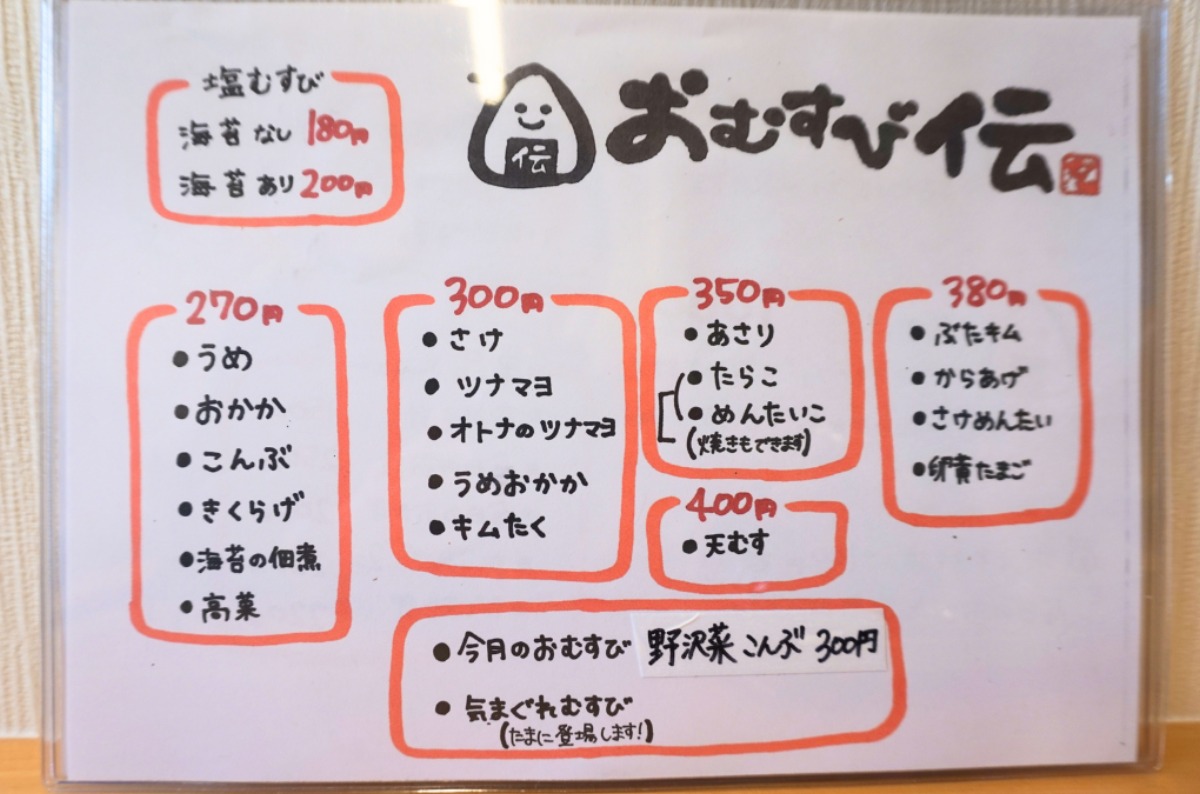 塩むすび
海苔なし 180円
海苔あり 200円
伝
おむすび伝
270円
• うめ
• おかか
• こんぶ
• きくらげ
• 海苔の佃煮
• 高菜
300円
• さけ
• ツナマヨ
• オトナのツナマヨ
• うめおかか
• キムたく
350円
• あさり
• たらこ
• めんたいこ
(焼きもできます)
400円
• 天むす
380円
• ぶたキム
• からあげ
• さけめんたい
• 卵黄たまご
• 今月のおむすび 野沢菜こんぶ 300円
• 気まぐれむすび
(たまに登場します!)